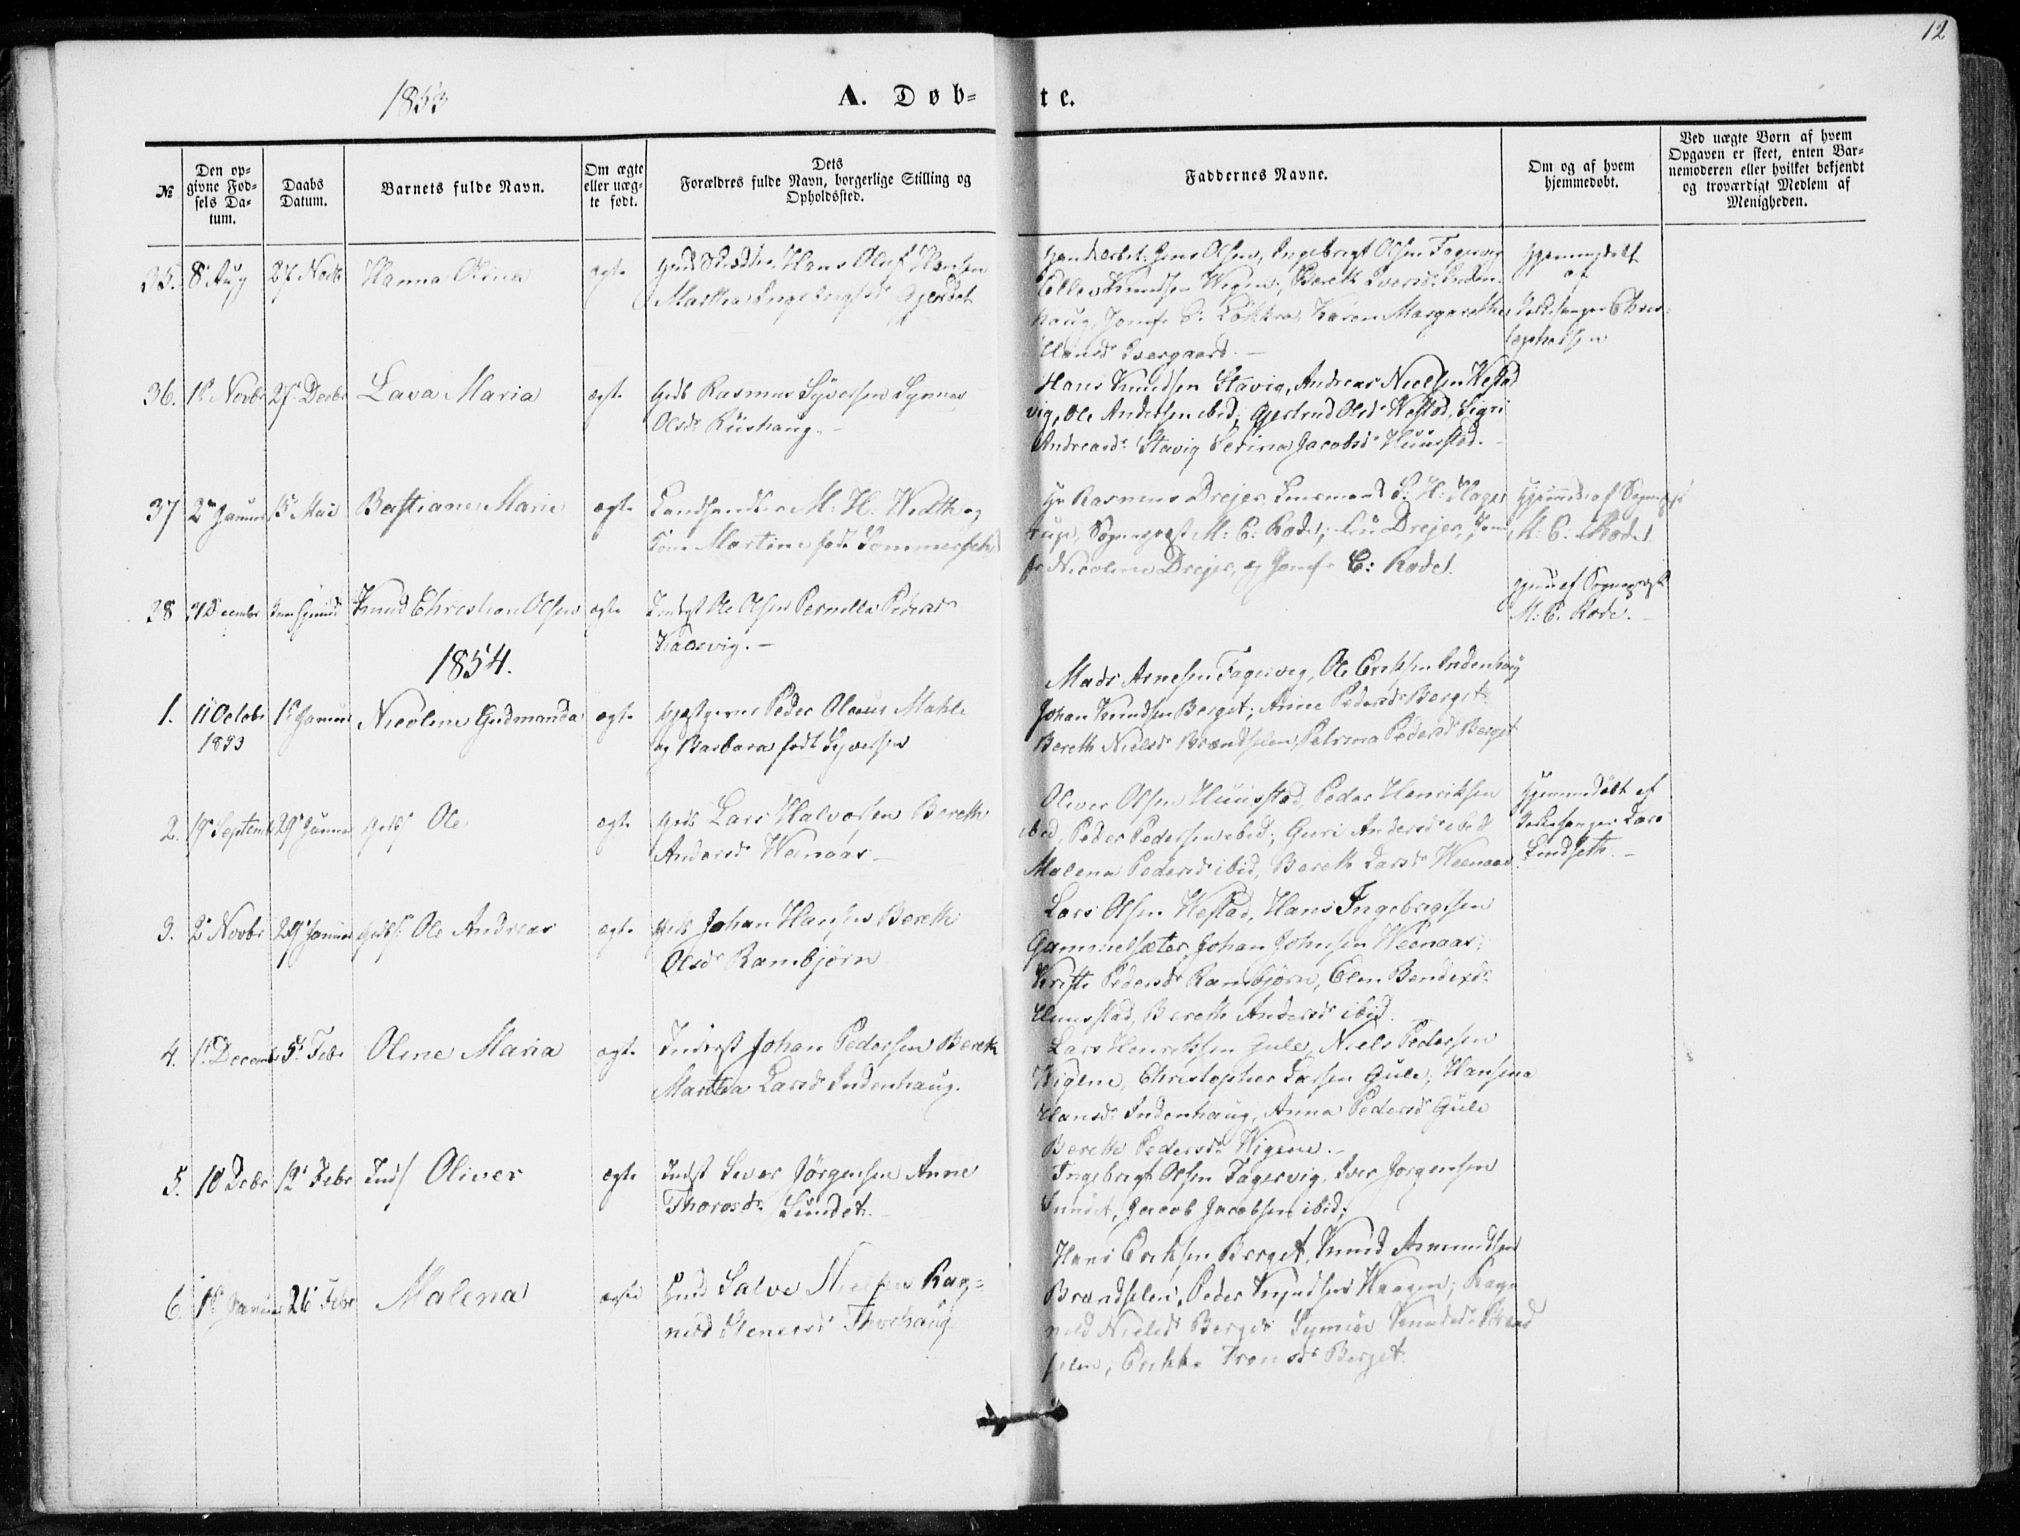 12
1853
A. Døb-te.
№
Den opgivne Fødsels Datum.
Daabs Datum.
Barnets fulde Navn.
Om ægte eller uægte født.
Dets Forældres fulde Navn, borgerlige Stilling og Opholdssted.
Faddernes Navne.
Om og af hvem hjemmedøbt.
Ved uægte Børn af hvem Opgaven er skeet, enten Barnemoderen eller hvilket bekjendt og troværdigt Medlem af Menigheden.
35. 8 Aug 27 Novb Hanna Olina ægte
Hans Oluf Hansen
Martha Ingebrigtsd Gjerdet
Jens Olsen, Ingebrigt Olsen Fagervig
Knudsen Wigen, Bereth Iversd. Inden
haug, Jomfr Løkken, Karen Margarethe
Hansd Overgaard.
Hjemmedøbt
af
36. 1 Novbr 27 Decbr Lava Maria ægte
Gdb Rasmus Syversen Synnev
Olsdr Riishaug.
Hans Knudsen Stavig, Andreas Nielsen Westad
vig, Ole Andersen ibid; Gjertrud Olsd Westad, Sigri
Andreasdr Stavig Serina Jacobsd Huustad.
37 2 Januar 15 Mai Bastiane Marie ægte
Landhandler M. H. Weth og
Kone Martine født Sommerfeldt
Hr Rasmus Drejer, Lensmand S. H. Hage
rup, Sognepræst M. C. Rode; Fru Drejer, Jom
fr Nicoline Drejer, og Jomfr C: Rode.
Hjemmed. af Sognepræst
M. C. Rode.
38 31 December Knud Christian Olsen ægte
Inderst Ole Olsen Pernille Pedersd
Kalsvig.
Hjemd af Sognepræst
M. C. Rode.
1854.
1. 11 Octobr 1853 1 Januar Nicoline Gudmanda ægte
Gjestgiver Peder Olaus Mahle
og Barbara født Syversen
Mads Arnesen Fagervig, Ole Eriksen Indenhaug
Johan Knudsen Berget; Anne Pedersd Berget
Bereth Nielsd Brændselen, Petrina Pedersd Berget
2. 19 Septemb 29 Januar Gdbs Ole ægte
Gdb Lars Halvorsen Bereth
Andersd Weenaas
Oliver Olsen Huustad, Peder Henriksen
ibid, Peder Pedersen ibid; Guri Andersd ibid
Malena Pedersd ibid, Bereth Larsd Weenaas.
Hjemmedøbt af
Kirkesanger Lars
Lindseth.
3. 2 Novbr 29 Januar Gdbs Ole Andreas ægte
Gdb Johan Hansen Bereth
Olsd Rambjørn
Lars Olsen Westad, Hans Ingebrigtsen
Gammelsæter, Johan Johnsen Weenaas;
Kristi Pedersd Rambjørn, Elen Bendixd.
Huustad, Bereth Andersd ibid.
4. 1 Decemb 5 Febr Oline Maria ægte
Inderst Johan Pedersen Bereth
Martha Larsd Indenhaug.
Lars Henriksen Gule, Niels Pedersen
Wigene, Christopher Larsen Gule; Hansina
Hansd. Indenhaug, Anna Pedersd Gule
Bereth Pedersd. Wigene.
5. 10 Febr 12 Febr Inds Oliver ægte
Indst Iver Jørgensen Anne
Thoresd. Sundet.
Ingebrigt Olsen Fagervig, Iver Jørgensen
Sundet, Jacob Jacobsen ibid;
6. 1 Januar 26 Febr Malena ægte
Ind Salve Nielsen Rag-
nild Stenersd Thorhaug
Hans Eriksen Berget, Knud Asmundsen
Brændselen, Peder Knudsen Haagen; Rag
nild Nielsd Berget Synnøv Knudsd. Brænd
selen, Erikke Tronsd. Berget.